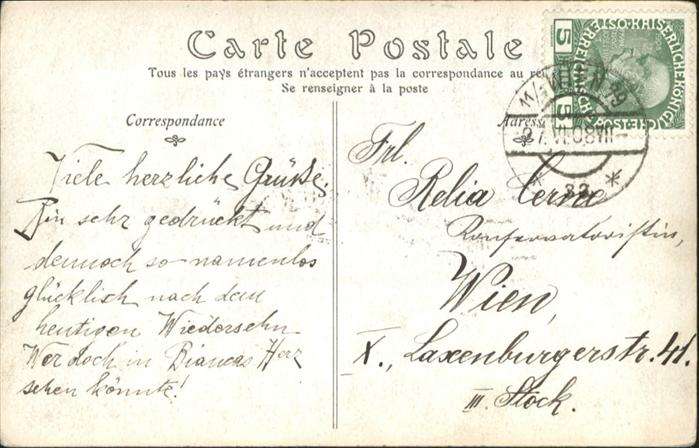 Carte Postale
Tous les pays étrangers n'acceptent pas la correspondance au
Se renseigner à la poste
Correspondance
Adresse
Viele herzliche Grüße.
Bin sehr gedrückt und
dennoch so namenlos
glücklich nach dem
heutigen Wiedersehn
Wer doch in Biancas Herz
sehen könnte!
Frl.
Relia Cerne
Konservatoristin,
Wien,
X., Laxenburgerstr. 41.
III. Stock.
5
5
WIEN